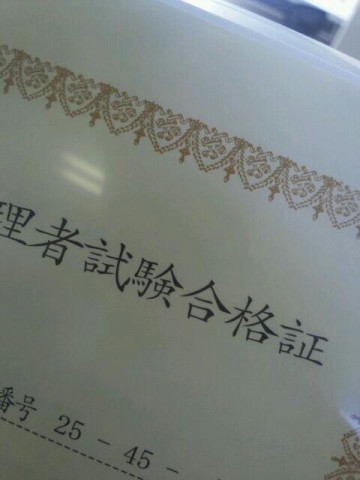 理者試験合格証
番号 25－45－